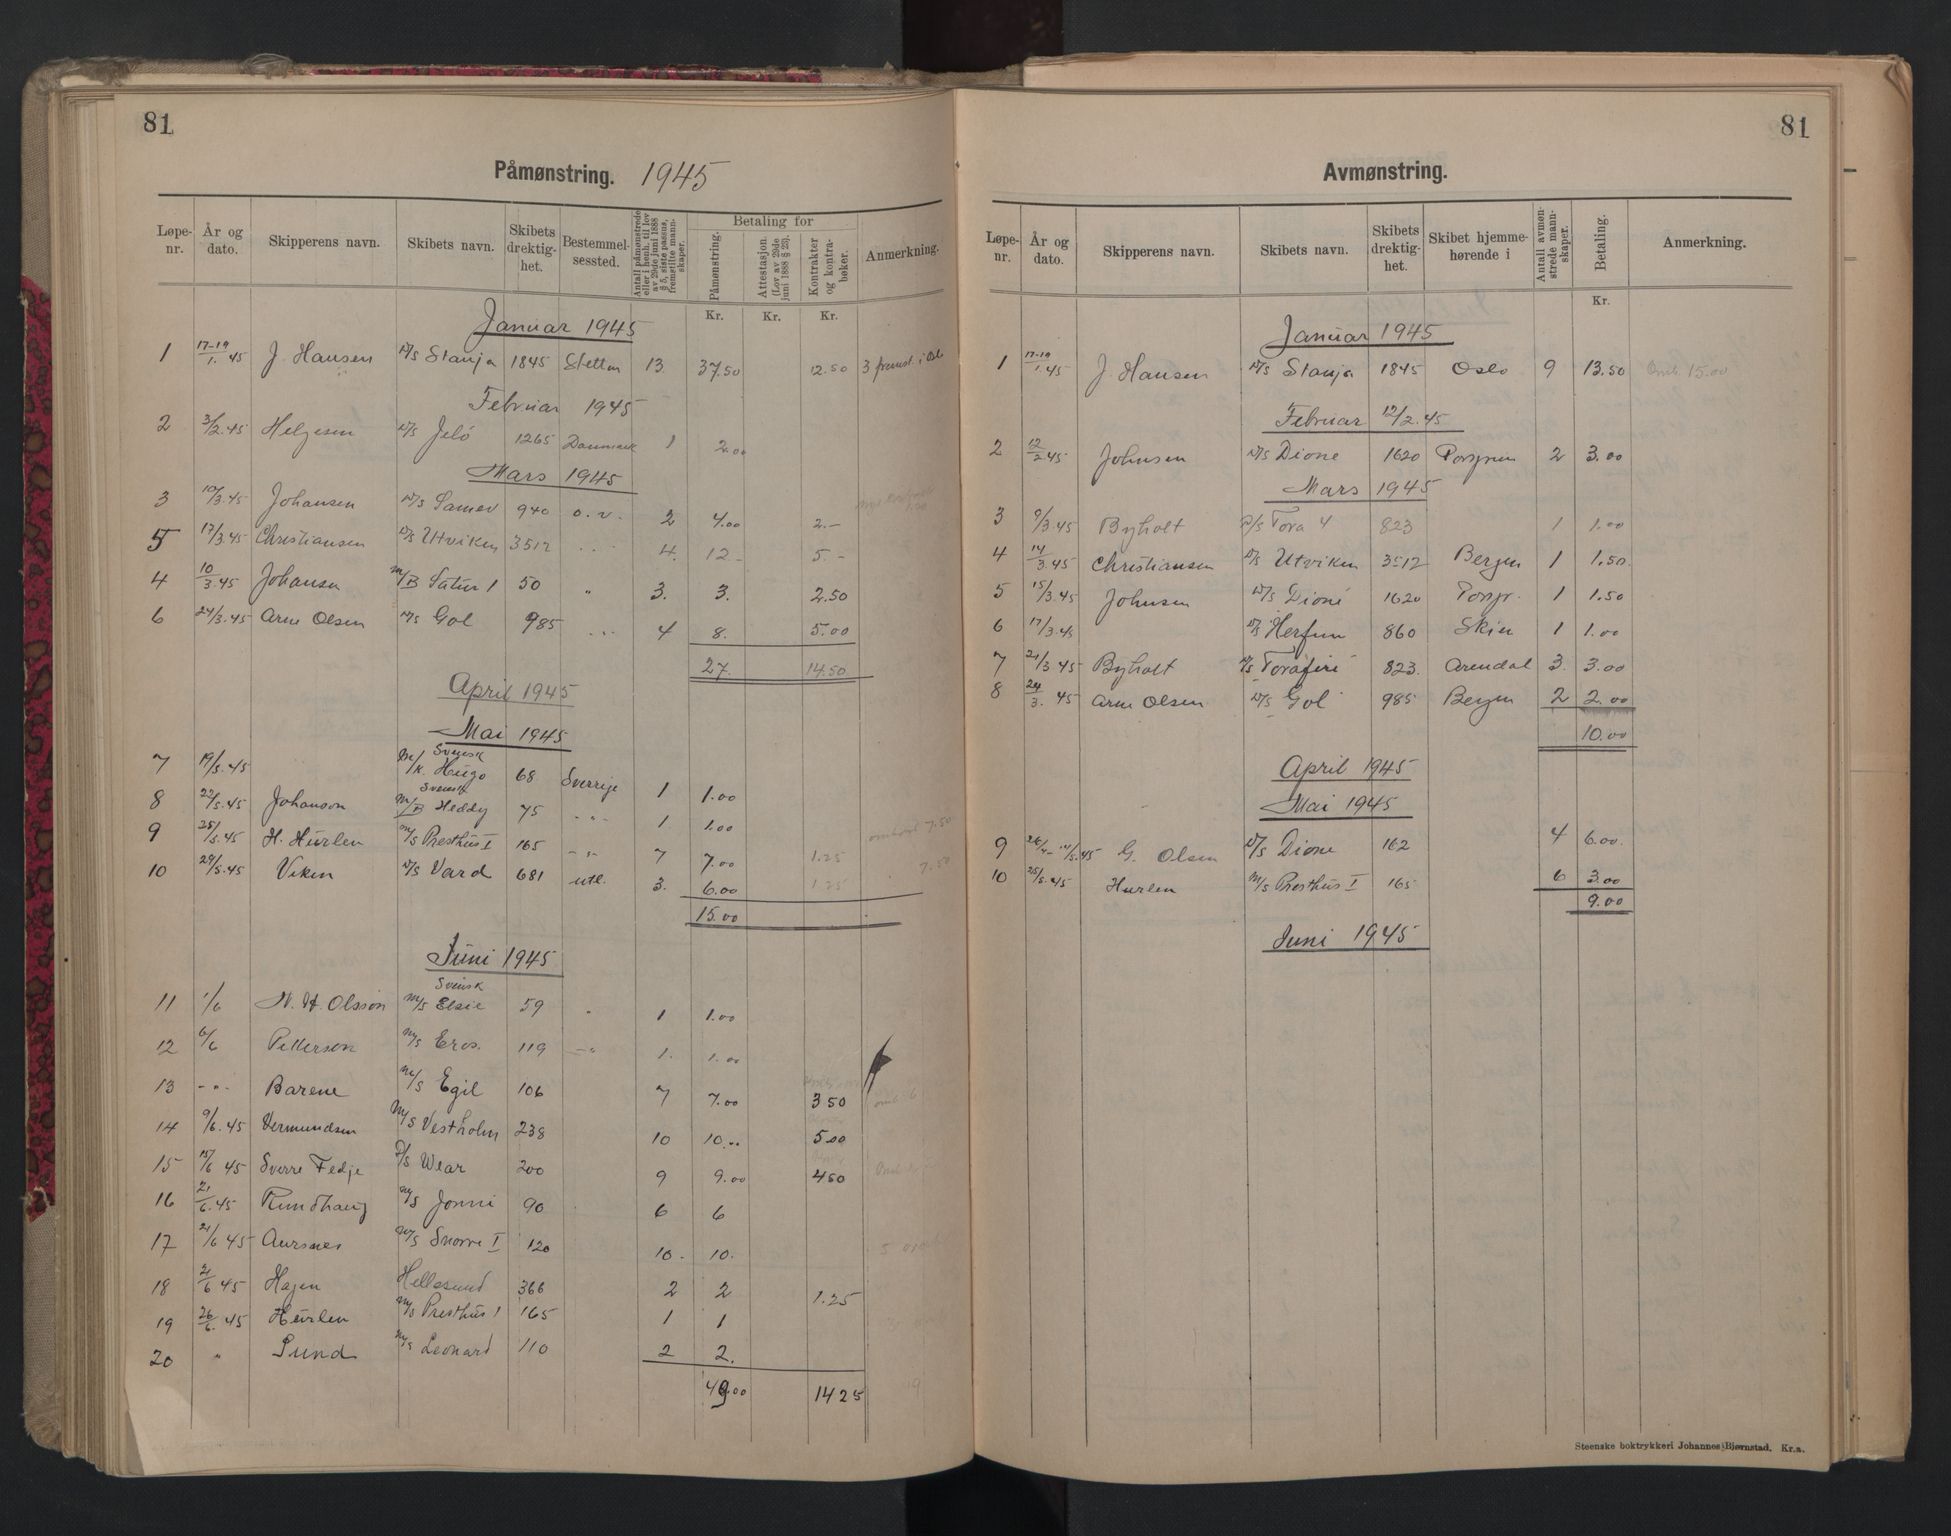 81
Påmønstring. 1945
Løpe-nr. År og dato. Skipperens navn. Skibets navn. Skibets drektighet. Bestemmelsessted. Antall påmønstrede eller i henh. til lov av 29de juni 1888 § 5, siste passus, fremstilte mannskaper. Betaling for Påmønstring. Attestasjon. (Lov av 29de juni 1888 § 23). Kontrakter og kontrabøker. Anmerkning.
Kr. Kr. Kr.
Januar 1945
1 17-19/1.45 J. Hansen D/S Stanja 1845 Stettin 13 37.50 12.50 3 fremst. i Osl
Februar 1945
2 3/2.45 Helgesen D/S Jelö 1265 Danmark 1 2.00
Mars 1945
3 10/3.45 Johansen D/S Samev 940 o.v. 2 4.00 2.-
5 17/3.45 Christiansen D/S Utviken 3512 " 4. 12 - 5 -
4 10/3.45 Johansen M/B Satur 1 50 " 3. 3. 2.50
6 24/3.45 Arne Olsen D/S Gol 985 " 4 8. 5.00
27. 14.50
April 1945
Mai 1945
7 19/5.45 Svensk M/K. Hugo 68 Sverrige 1 1.00
8 22/5.45 Johanson Svensk M/B Heddy 75 -"- 1 1.00
9 25/5.45 H. Hurlen M/S Presthus I 165 -"- 7 7.00 1.25 7.50
10 29/5.45 Viken D/S Vard 681 utl. 3. 6.00 1.25 7.50
15.00
Juni 1945
11 1/6 N. H. Olsson Svensk M/S Elsie 59 " 1 1.00
12 6/6 Petterson M/S Eros. 119 -"- 1. 1.00
13 -"- Barene M/S Egil 106 7 7.00 3 50
14 9/6.45 Vermundsen M/S Vestholm 238 10 10.00 5 00
15 15/6 45 Sverre Fedje D/S Wear 200 9 9.00 4 50
16 21/6.45 Rundhaug M/S Jonni 90 6 6
17 21/6 45 Aursnes M/S Snorre I 120 10. 10.
18 21/6 45 Hagen Hellesund 366 2 2 1.25
19 26/6. 45 Hurlen M/S Presthus 1 165 1 1
20 " Sund M/S Leonard 110 2 2.
49.00 14 25
81
Avmønstring.
Løpe-nr. År og dato. Skipperens navn. Skibets navn. Skibets drektighet. Skibet hjemmehørende i Antall avmønstrede mannskaper. Betaling. Anmerkning.
Kr.
Januar 1945
1 17-19/1.45 J. Hansen D/S Stanja 1845 Oslo 9 13.50 15.00
Februar 12/2.45
2 12/2 45 Johnsen D/S Dione 1620 Porsgrunn 2 3.00
Mars 1945
3 9/3.45 Byholt D/S Tora 4 823 1 1.00
4 14/3.45 Christiansen D/S Utviken 3512 Bergen 1 1.50
5 15/3.45 Johnsen D/S Dione 1620 Porsgr. 1 1.50
6 17/3.45 D/S Herfunn 860 Skien 1 1.00
7 21/3 45 Byholt D/S Torafire 823. Arendal 3. 3.00
8 24/3. 45 Arne Olsen D/S Gol 985 Bergen 2 2.00
10.00
April 1945
Mai 1945
9 26/4-14/5.45 G. Olsen D/S Dione 162 4 6.00
10 25/5.45 Hurlen M/S Presthus I 165 6 3.00
9.00
Juni 1945
Steenske boktrykkeri Johannes Bjørnstad. Kr.a.